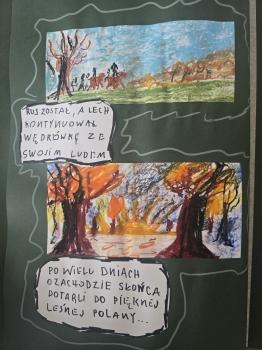 RUS ZOSTAŁ, A LECH
KONTYNUOWAŁ
WĘDRÓWKĘ ZE
SWOIM LUDEM
PO WIELU DNIACH
O ZACHODZIE SŁOŃCA
DOTARLI DO PIĘKNEJ
LEŚNEJ POLANY...